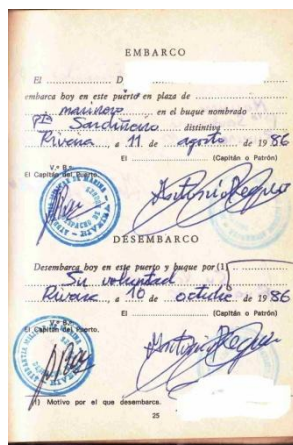 EMBARCO
El ............... D
embarca hoy en este puerto en plaza de ...............
marinero en el buque nombrado
Pta Sardiñeiro distintivo
a 11 de agosto de 1986
El ............... (Capitán o Patrón)
V.º B.º
El Capitán del Puerto,
DESEMBARCO
Desembarca hoy en este puerto y buque por (1)
Su voluntad
a 10 de octubre de 1986
El ............... (Capitán o Patrón)
V.º B.º
El Capitán del Puerto,
(1) Motivo por el que desembarca.
25